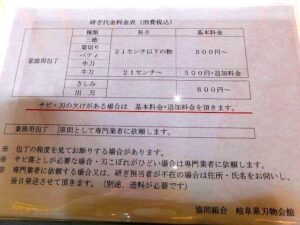 研ぎ代金料金表（消費税込）
種類 長さ 基本料金
家庭用包丁
三徳
菜切り 21センチ以下の物 500円～
牛刀
牛刀 21センチ～ 500円+追加料金
さしみ
出刃 800円～
サビ・刃の欠けがある場合は 基本料金+追加料金を頂きます。
業務用包丁 原則として専門業者に依頼します。
※ 包丁の程度を見てお断りする場合があります。
※ サビ落としが必要な場合・刃こぼれがひどい場合は専門業者に依頼します。
※ 専門業者に依頼する場合又は、研ぎ担当者が不在の場合は住所・氏名をお伺いし、
後日発送させて頂きます。（別途、送料が必要です）
協同組合 岐阜県刃物会館